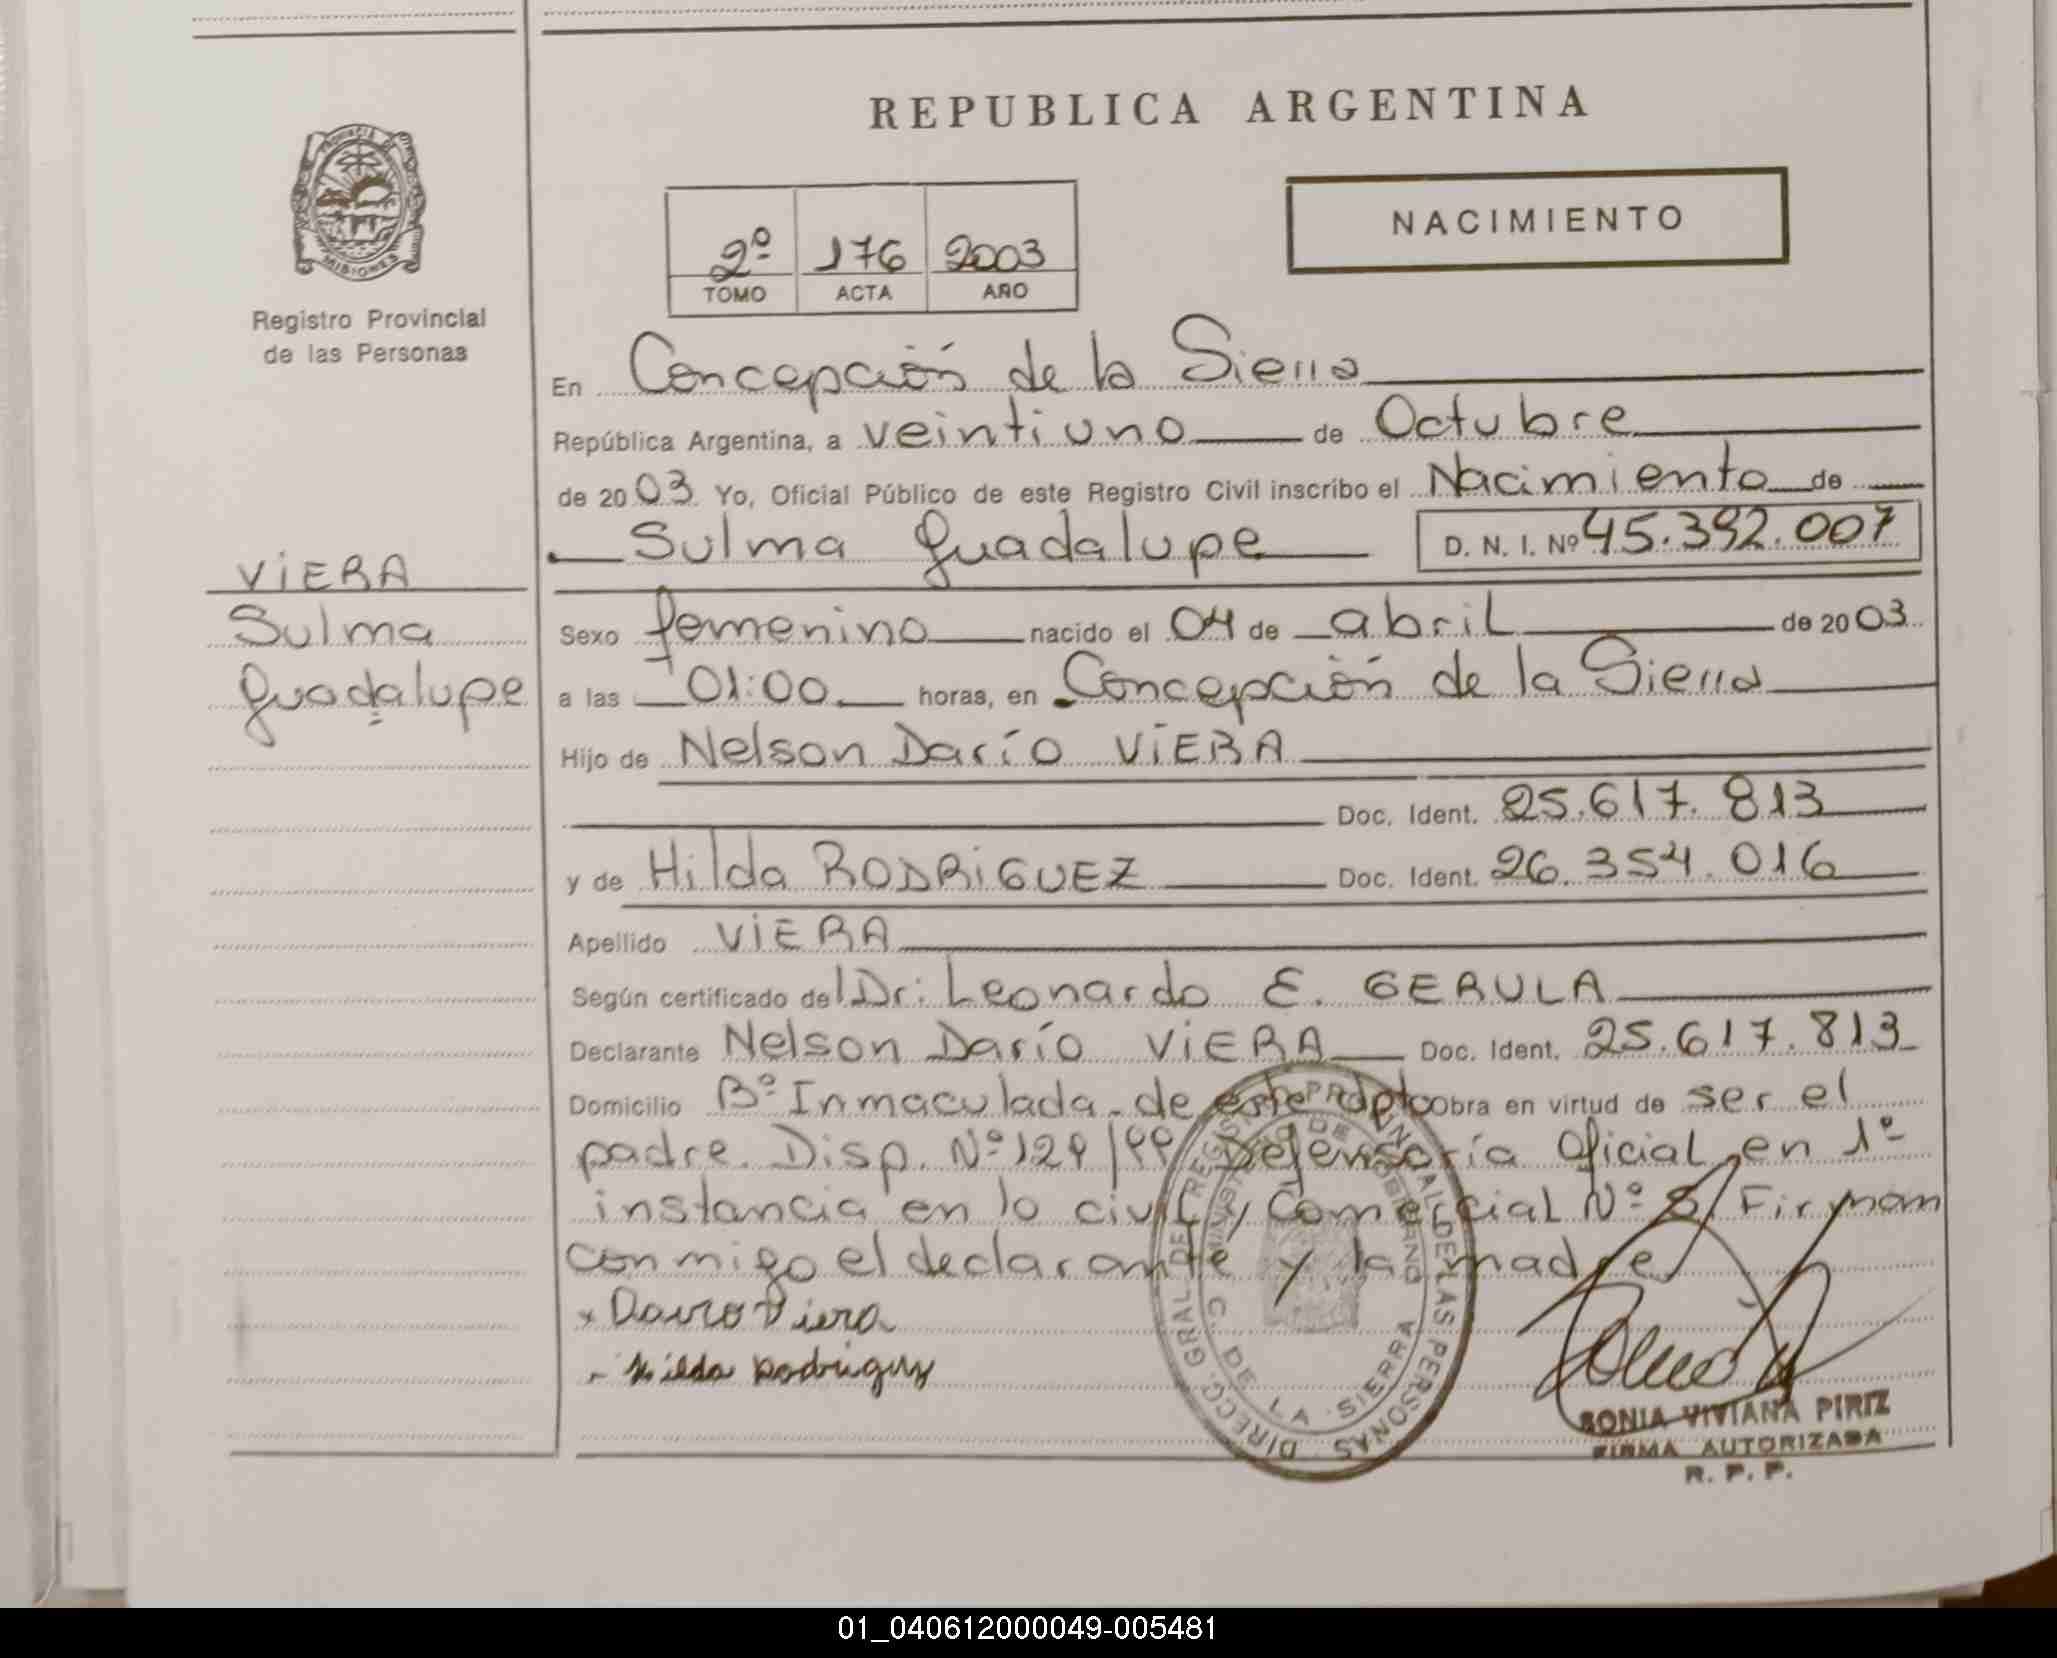 REPUBLICA ARGENTINA
PROVINCIA DE MISIONES
Registro Provincial
de las Personas
NACIMIENTO
2º 176 2003
TOMO ACTA AÑO
En Concepción de la Sierra
República Argentina, a veintiuno de Octubre
de 2003 Yo, Oficial Público de este Registro Civil inscribo el Nacimiento de
Sulma Guadalupe D. N. I. Nº 45.392.007
VIERA
Sulma
Guadalupe
Sexo femenino nacido el 04 de abril de 2003
a las 01:00 horas, en Concepción de la Sierra
Hijo de Nelson Darío VIERA
Doc. Ident. 25.617.813
y de Hilda RODRIGUEZ Doc. Ident. 26.354.016
Apellido VIERA
Según certificado del Dr. Leonardo E. GERULA
Declarante Nelson Darío VIERA Doc. Ident. 25.617.813
Domicilio Bº Inmaculada - de este dpto Obra en virtud de ser el
padre. Disp. Nº 129/99 Defensoría Oficial en 1º
instancia en lo civil y Comercial Nº Firman
conmigo el declarante y la madre
Dario Viera
Hilda Rodriguez
DIRECC. GRAL. DE REGISTRO PROVINCIAL DE LAS PERSONAS
MINISTERIO DE GOBIERNO
C. DE LA SIERRA
SONIA VIVIANA PIRIZ
FIRMA AUTORIZADA
R. P. P.
01_040612000049-005481